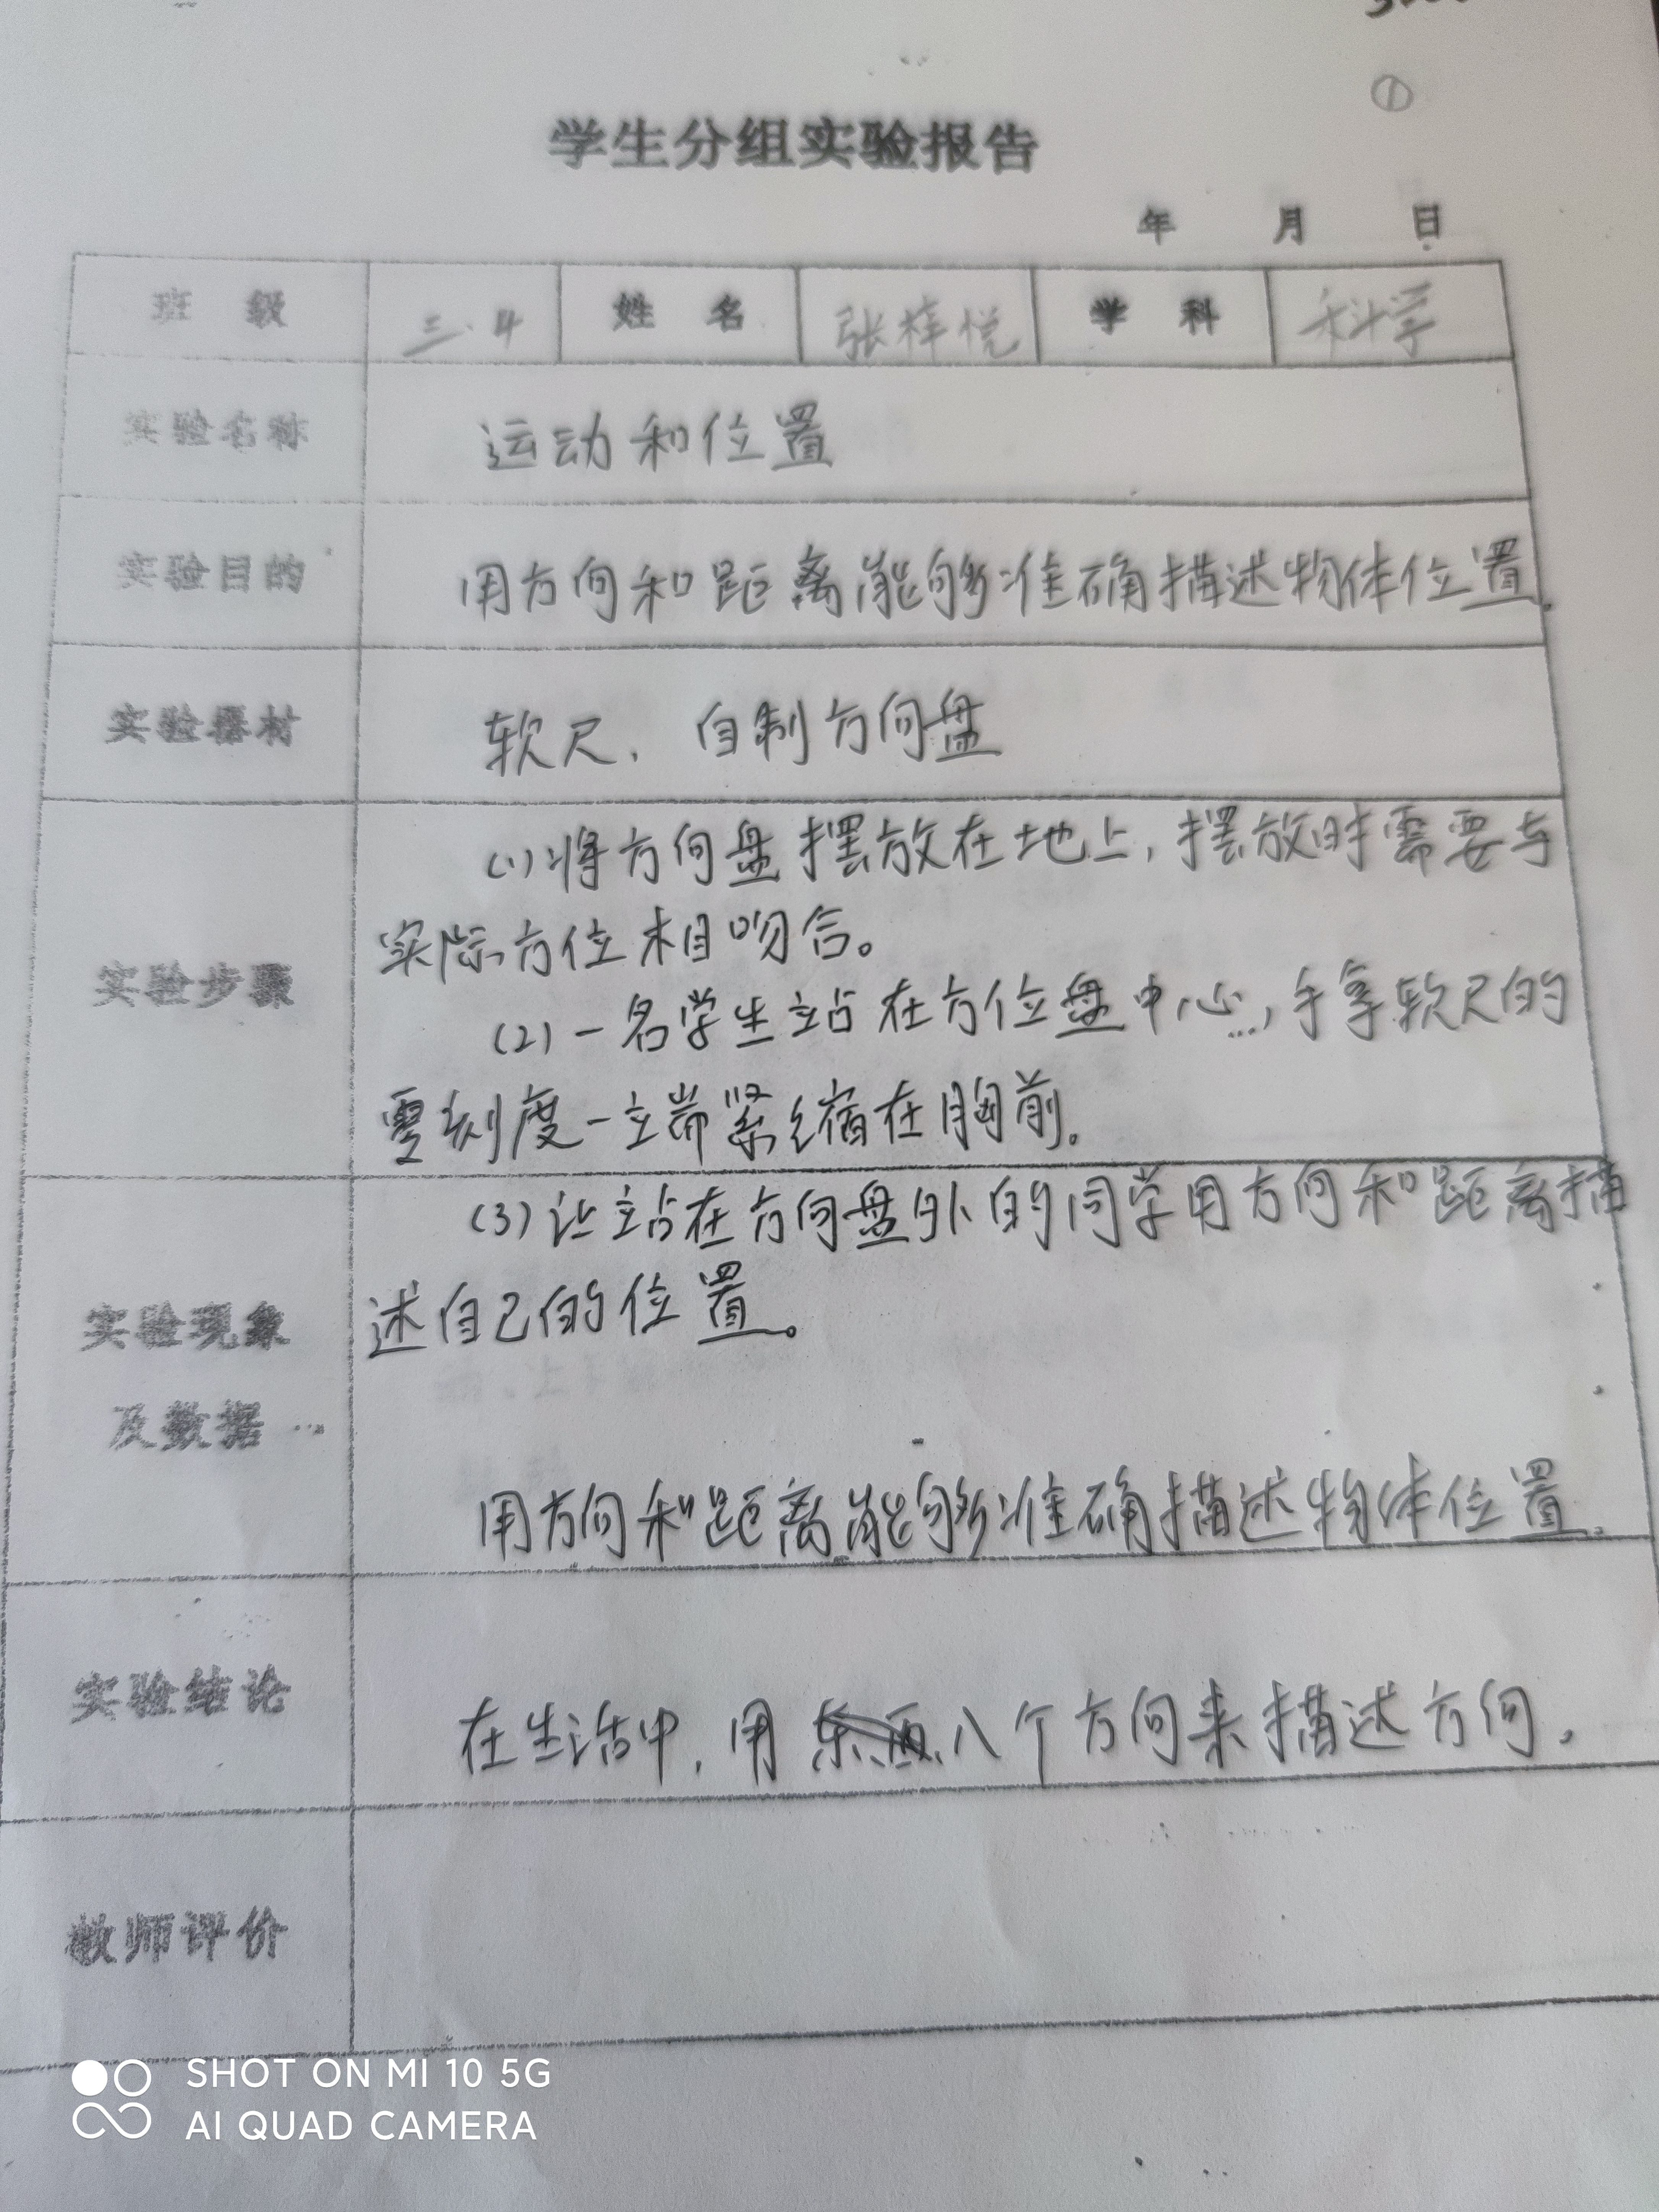 ①
学生分组实验报告
年 月 日
班 级 三.4 姓 名 张梓悦 学 科 科学
实验名称 运动和位置
实验目的 用方向和距离能够准确描述物体位置.
实验器材 软尺、自制方向盘
(1)将方向盘摆放在地上,摆放时需要与
实际方位相吻合。
实验步骤
(2)一名学生站在方位盘中心,手拿软尺的
零刻度一端紧缩在胸前。
(3)让站在方向盘外的同学用方向和距离描
述自己的位置。
实验现象
及数据
用方向和距离能够准确描述物体位置.
实验结论 在生活中,用八个方向来描述方向。
教师评价
SHOT ON MI 10 5G
AI QUAD CAMERA